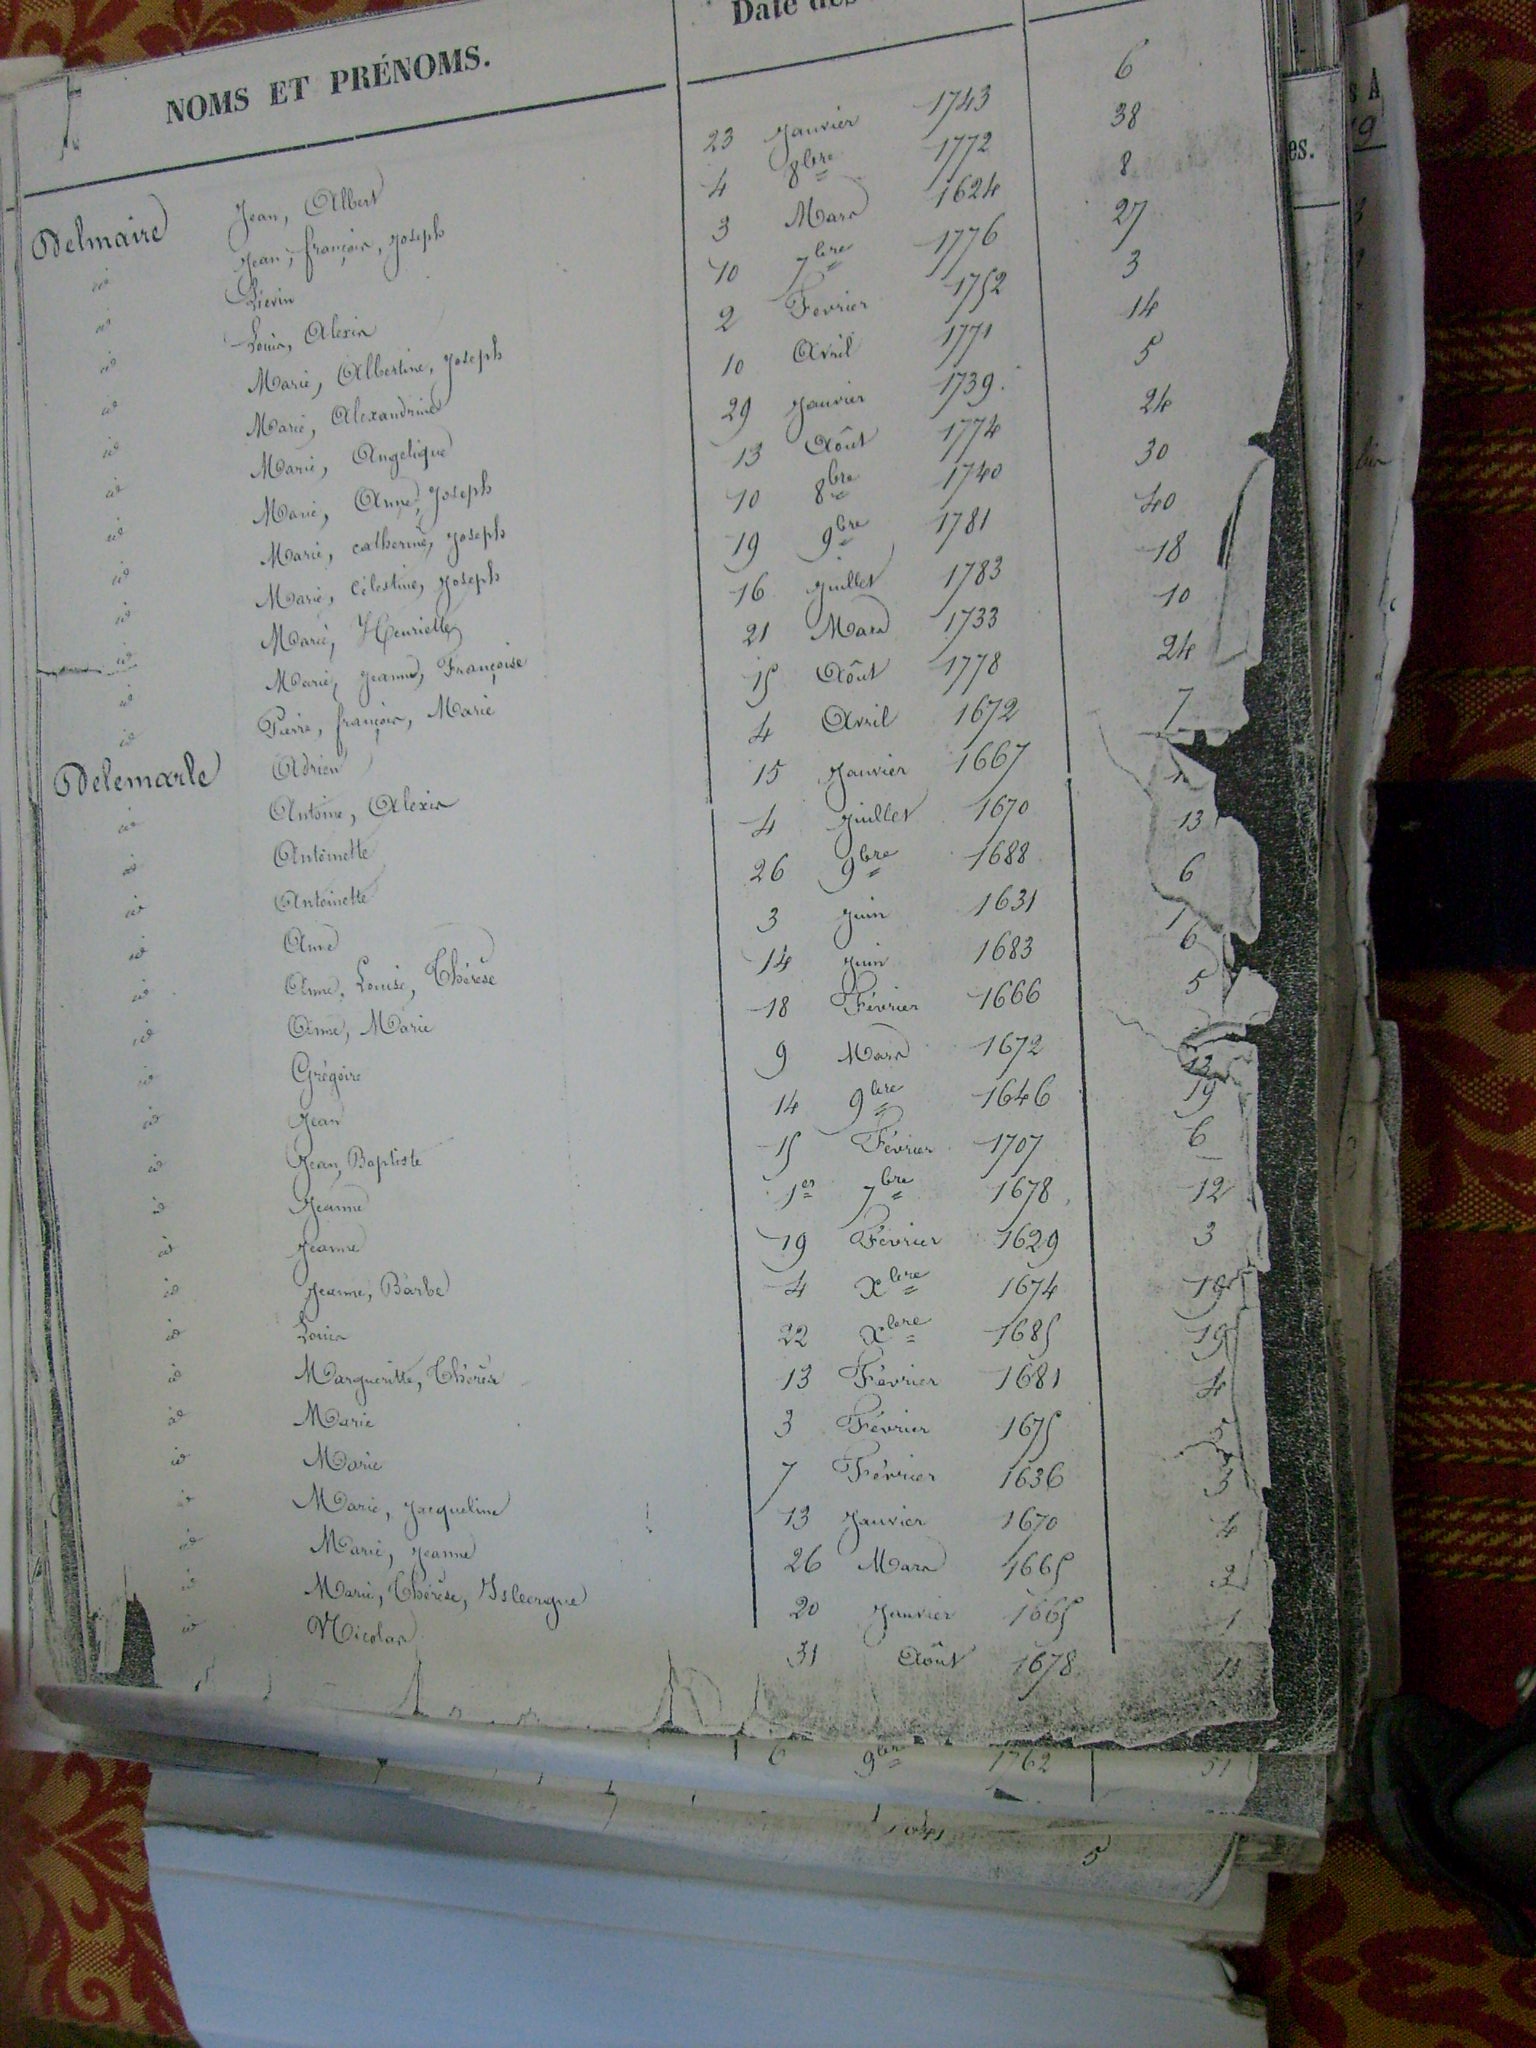 NOMS ET PRÉNOMS. Date des
Delmaire Jean, Albert 23 Janvier 1743 6
id Jean, françois, Joseph 4 8bre 1772 38
id Liévin 3 Mars 1624 8
id Louis, Alexis 10 7bre 1776 27
id Marie, Albertine, Joseph 2 Fevrier 1752 3
id Marie, Alexandrine 10 Avril 1771 14
id Marie, Angelique 29 Janvier 1739. 5
id Marie, Anne, Joseph 13 Août 1774 24
id Marie, catherine, Joseph 10 8bre 1740 30
id Marie, Célestine, Joseph 19 9bre 1781 40
id Marie, Henriette 16 juillet 1783 18
id Marie, Jeanne, Françoise 21 Mars 1733 10
id Pierre, françois, Marie 15 Août 1778 24
Delemarle Adrien 4 Avril 1672 7
id Antoine, Alexis 15 Janvier 1667
id Antoinette 4 juillet 1670 13
id Antoinette 26 9bre 1688 6
id Anne 3 juin 1631 1
id Anne, Louise, Thérèse 14 juin 1683 6
id Anne, Marie 18 Février 1666 5
id Grégoire 9 Mars 1672 12
id Jean 14 9bre 1646 19
id Jean, Baptiste 15 Février 1707 6
id Jeanne 1er 7bre 1678 12
id Jeanne 19 Février 1629 3
id Jeanne, Barbe 4 Xbre 1674 18
id Louis 22 Xbre 1685 19
id Margueritte, Thérèse 13 Février 1681 4
id Marie 3 Février 1675 5
id Marie 7 Février 1636 3
id Marie, Jacqueline 13 Janvier 1670 4
id Marie, Jeanne 26 Mars 1665 2
id Marie, Thérèse, Isbergue 20 Janvier 1665 1
id Nicolas 31 Août 1678 11
6 9bre 1762 51
5